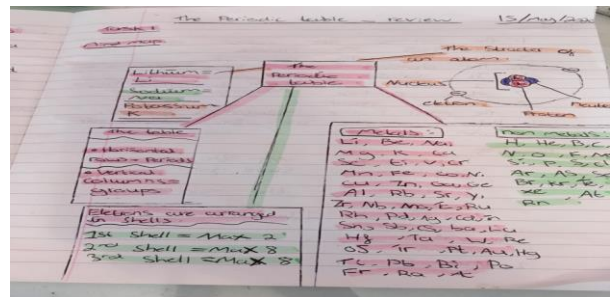 The Periodic table - review
15/May/202
Task 1
Mind map
Lithium =
Li
Sodium =
Na
Potassium
K
The
Periodic
table
The Structer of
an atom
Nucleus
elctron
Proton
The table
• Horizontal
rows = Periods
• Vertical
Columns =
groups
Elctrons are arranged
in Shells
1st Shell = Max 2
2nd Shell = Max 8
3rd Shell = Max 8
Metals:
Li, Be, Na,
Mg, K, Ca,
Sc, Ti, V, Cr
Mn, Fe, Co, N.
Cu, Zn, Ga, Ge
Al, Rb, Sr, Y,
Zr, Nb, Mo, Tc, Ru
Rh, Pd, Ag, Cd, In
Sn, Sb, Cs, Ba, Lu
Hf, Ta, W, Re
Os, Ir, Pt, Au, Hg
Tl, Pb, Bi, Po
Fr, Ra,
non metals:
H, He, B, C,
N, O, F, Ne
Si, P, S, Cl
Ar, As, Se
Br, Kr, Te,
Xe, At
Rn